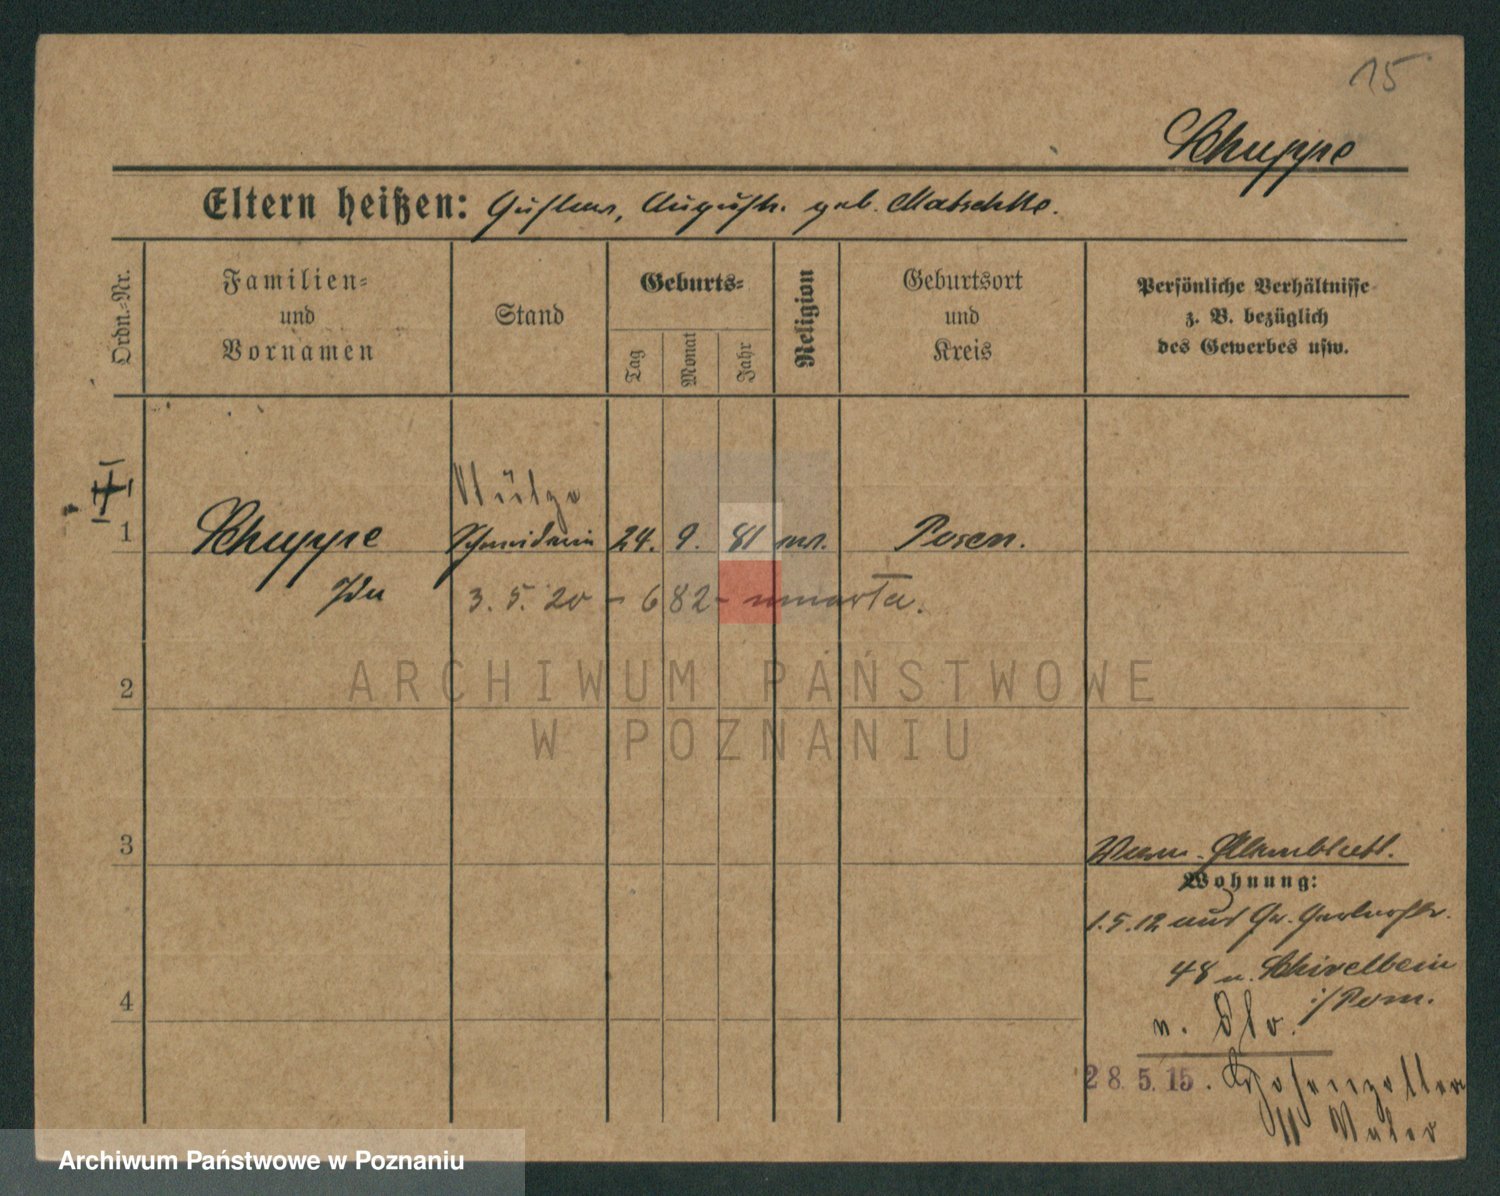 15
Schuppe
Eltern heißen: Gustav, August. geb. Matschke.
Ordn.-Nr.
Familien-
und
Vornamen
Stand
Geburts-
Tag
Monat
Jahr
Religion
Geburtsort
und
Kreis
Persönliche Verhältnisse
z. B. bezüglich
des Gewerbes usw.
1 Schuppe Schneiderin 24. 9. 81 Posen.
Ida 3. 5. 20 - 682 - umarła.
2
ARCHIWUM PAŃSTWOWE
W POZNANIU
3
Wohnung:
1.5.12
48 n. Schivelbein
i/Pom.
4
28.5.15. Hohenzollern
Archiwum Państwowe w Poznaniu